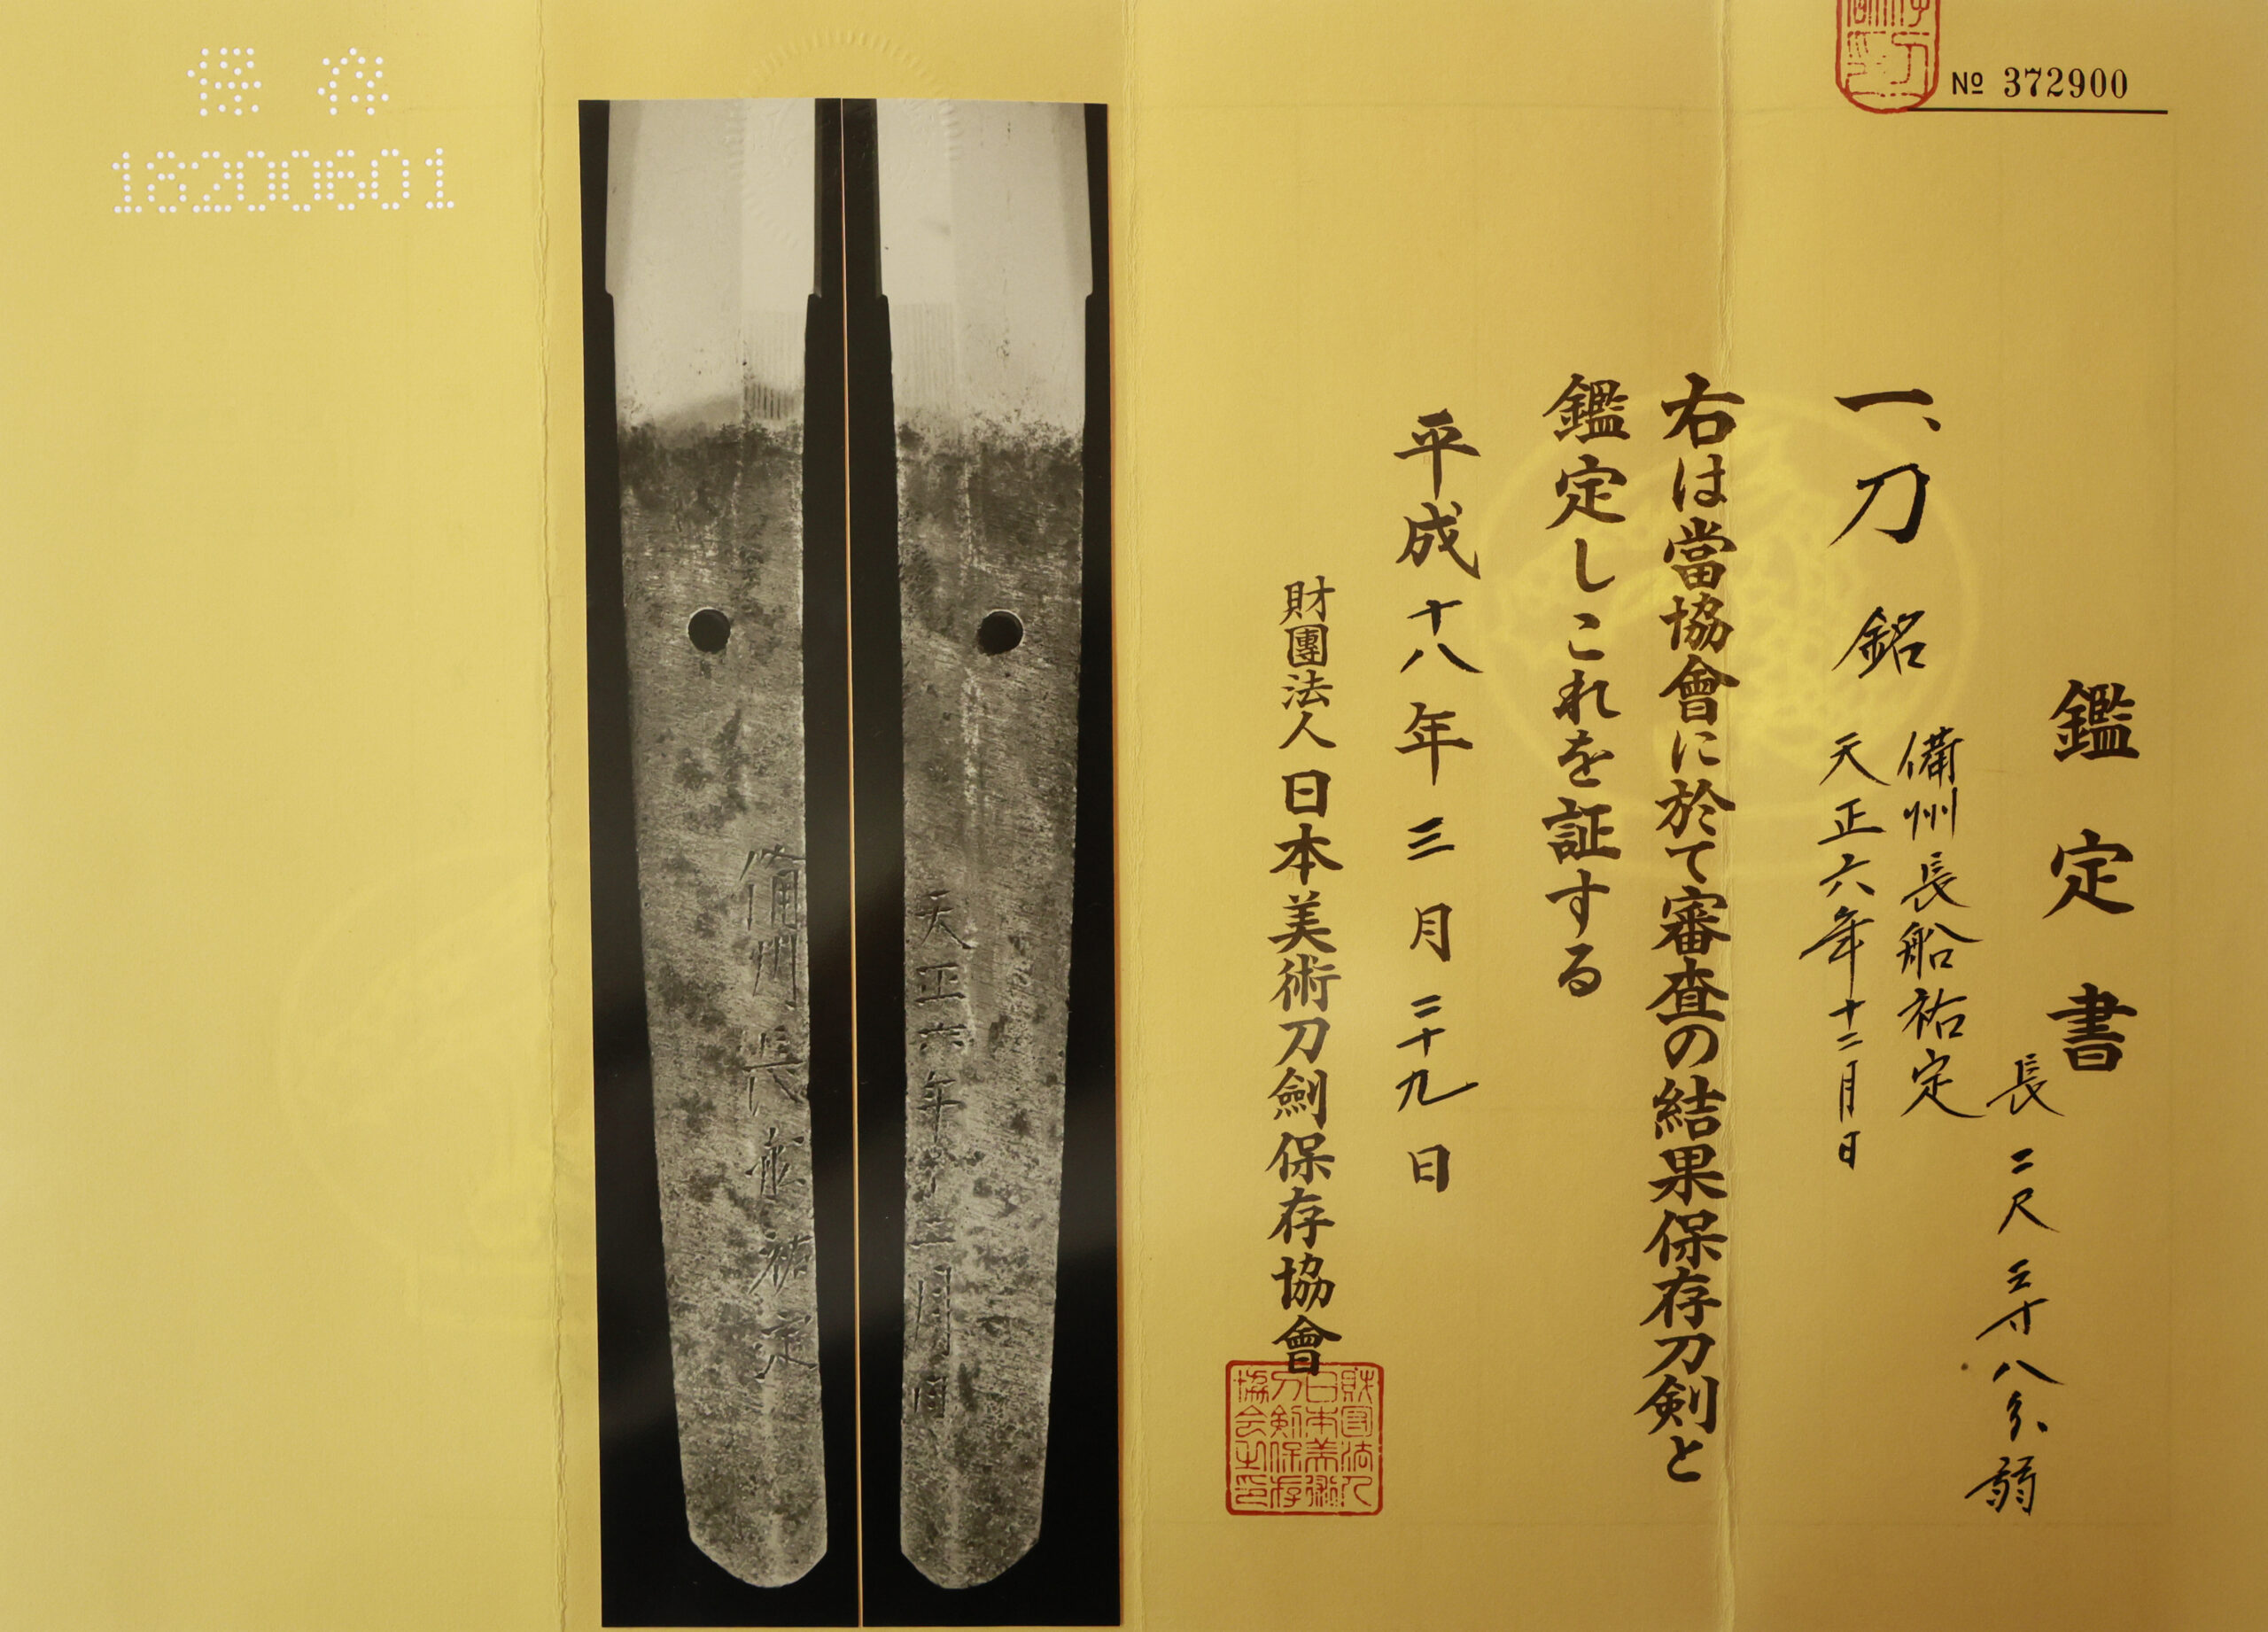 № 372900
鑑定書
長 二尺三寸八分弱
一、刀 銘 備州長船祐定
天正六年十二月日
右は當協會に於て審査の結果保存刀剣と
鑑定しこれを証する
平成十八年三月二十九日
財團法人日本美術刀劍保存協會
財団法人
日本美術
刀剣保存
協会之印
天正六年十二月日
備州長船祐定
保存
18200601